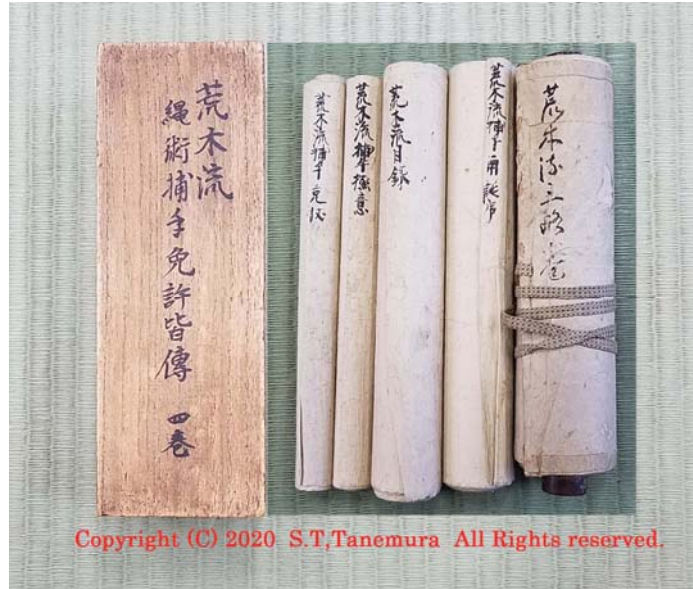 荒木流
縄術捕手免許皆傳 四巻
荒木流捕手免
荒木流捕手極意
荒木流目録
荒木流捕手
荒木流三
Copyright (C) 2020 S.T,Tanemura All Rights reserved.